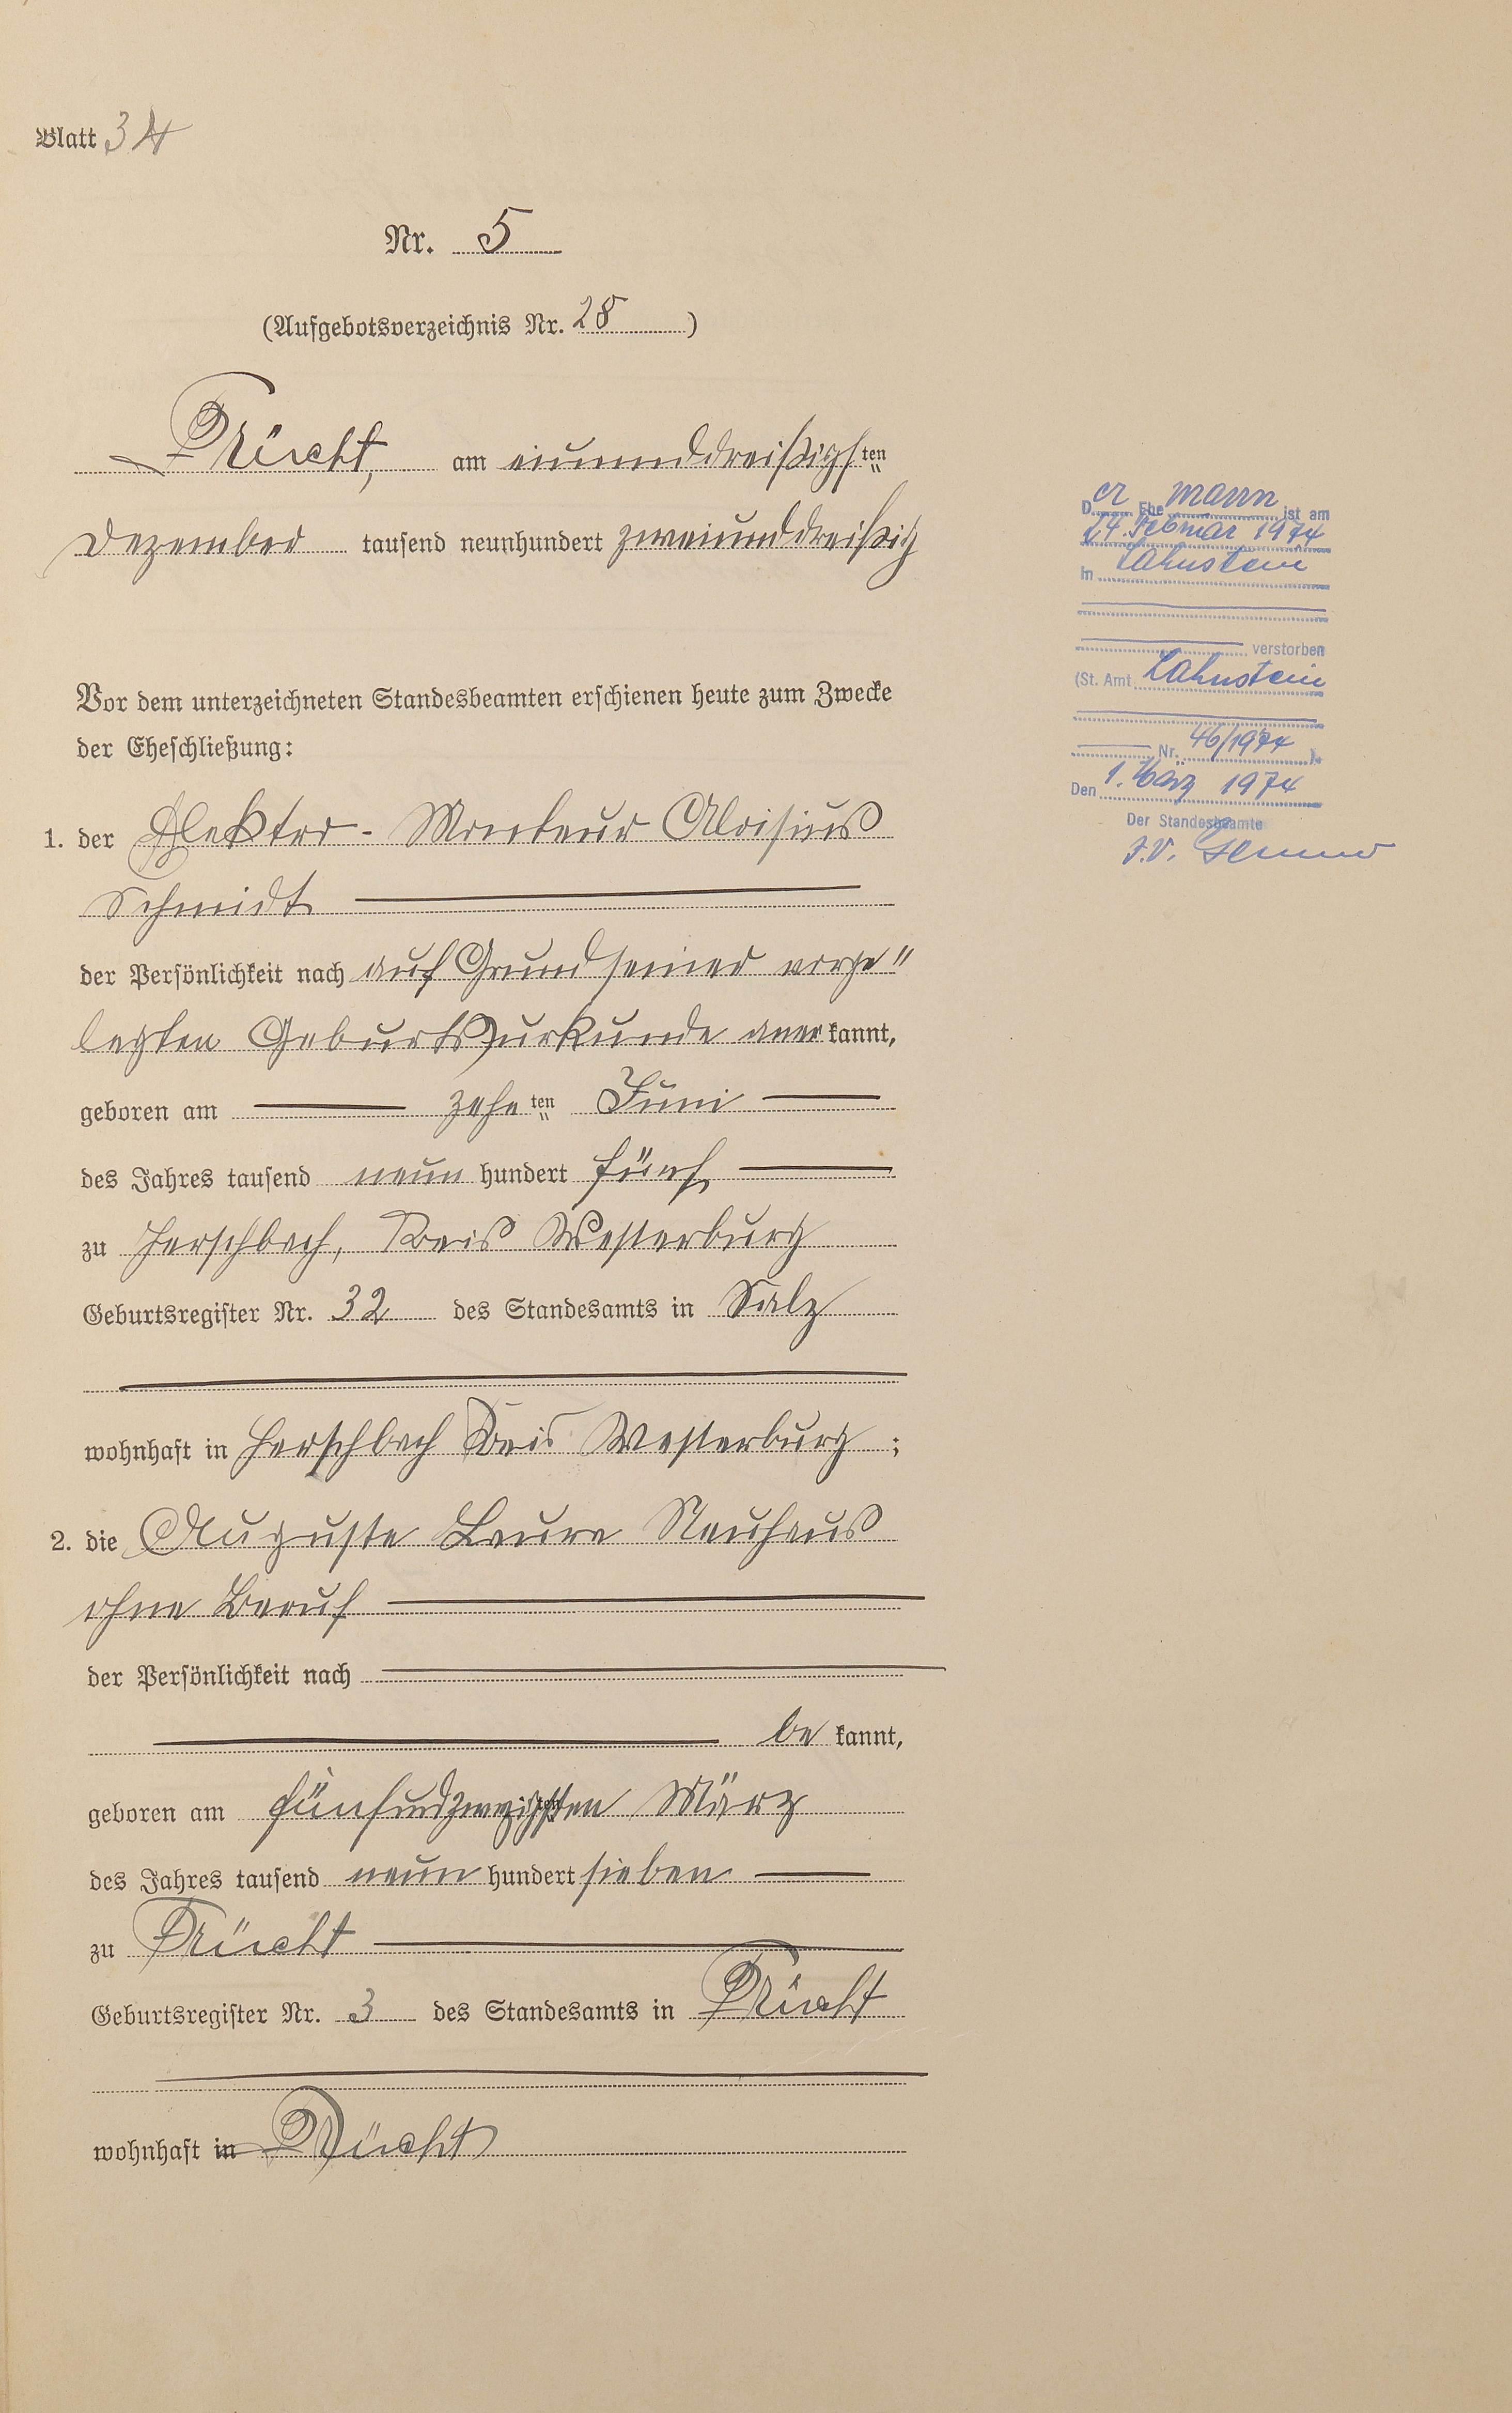 Blatt 34
Nr. 5
(Aufgebotsverzeichnis Nr. 28)
Frücht, am einunddreißigsten
Dezember tausend neunhundert zweiunddreißig
Vor dem unterzeichneten Standesbeamten erschienen heute zum Zwecke
der Eheschließung:
1. der Elektro-Monteur Aloisius
Schmidt
der Persönlichkeit nach auf Grund seiner vorge"
legten Geburtsurkunde anerkannt,
geboren am zehnten Juni
des Jahres tausend neunhundert fünf
zu Herschbach, Kreis Westerburg
Geburtsregister Nr. 32 des Standesamts in Salz
wohnhaft in Herschbach Kreis Westerburg;
2. die Auguste Laura Neuhaus
ohne Beruf
der Persönlichkeit nach
bekannt,
geboren am fünfundzwanzigsten März
des Jahres tausend neunhundert sieben
zu Frücht
Geburtsregister Nr. 3 des Standesamts in Frücht
wohnhaft in Frücht
Der Ehemann ist am
24. Februar 1974
in Lahnstein
verstorben
(St. Amt Lahnstein
Nr. 46/1974).
Den 1. März 1974
Der Standesbeamte
I.V.